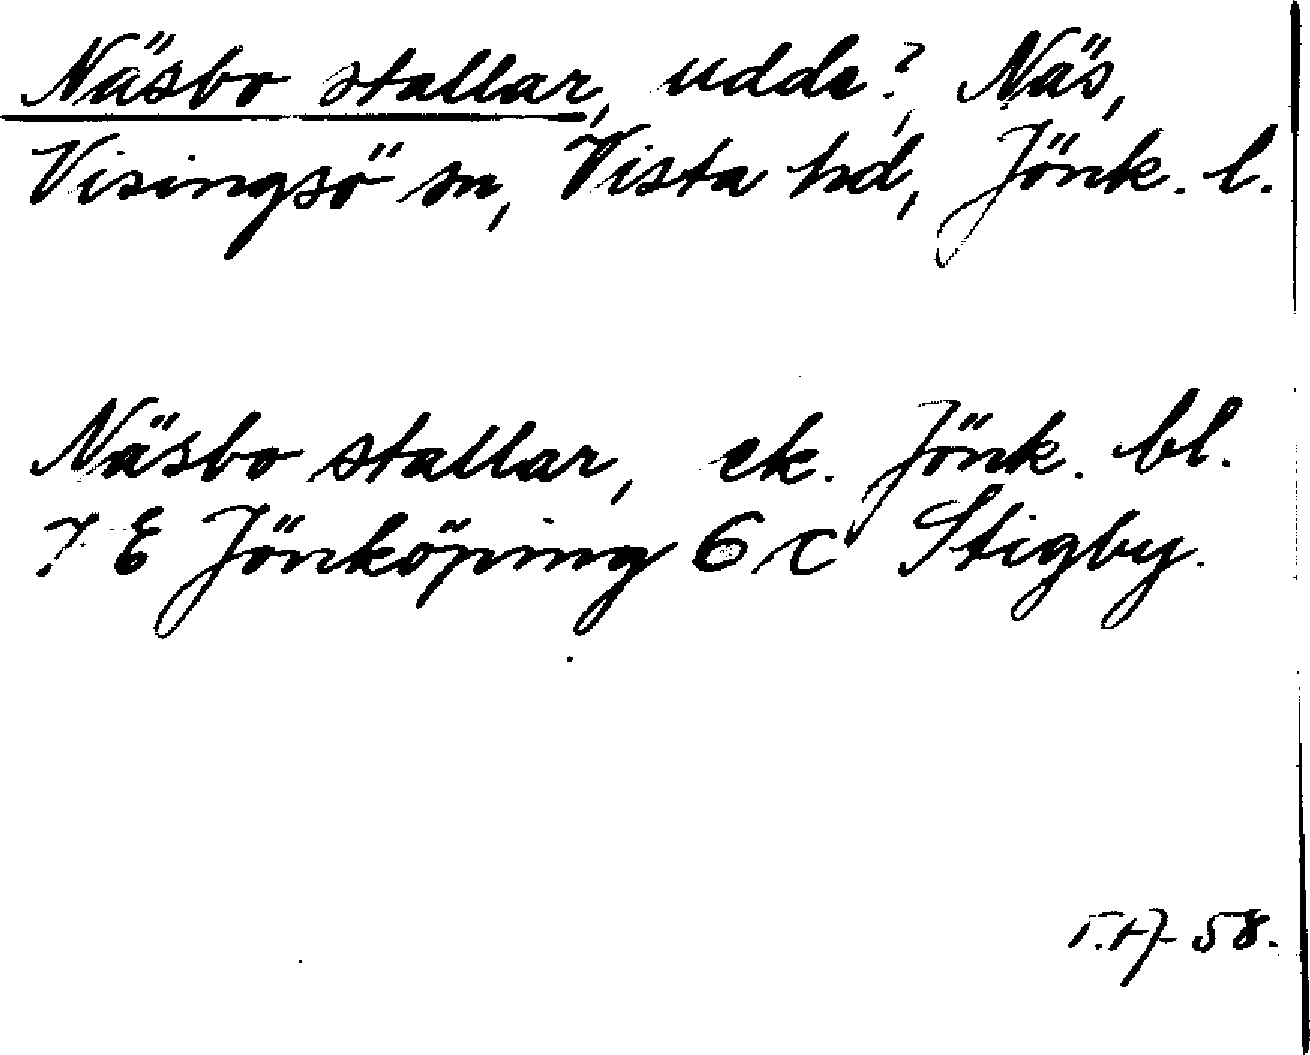 Näsbo stallar, udde?, Näs,
Visingsö sn, Vista hd, Jönk. l.
Näsbo stallar, ek. Jönk. bl.
7 E Jönköping 6 c Stigby.
58.